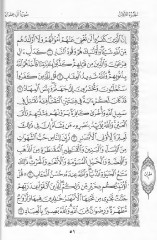 الجزء الثالث سورة آل عمران
إِنَّ الَّذِينَ كَفَرُوا لَن تُغْنِيَ عَنْهُمْ أَمْوَالُهُمْ وَلَا أَوْلَادُهُم
مِّنَ اللَّهِ شَيْئًا وَأُولَٰئِكَ هُمْ وَقُودُ النَّارِ ١٠ كَدَأْبِ آلِ
فِرْعَوْنَ وَالَّذِينَ مِن قَبْلِهِمْ كَذَّبُوا بِآيَاتِنَا فَأَخَذَهُمُ اللَّهُ
بِذُنُوبِهِمْ وَاللَّهُ شَدِيدُ الْعِقَابِ ١١ قُل لِّلَّذِينَ كَفَرُوا
سَتُغْلَبُونَ وَتُحْشَرُونَ إِلَىٰ جَهَنَّمَ وَبِئْسَ الْمِهَادُ ١٢
قَدْ كَانَ لَكُمْ آيَةٌ فِي فِئَتَيْنِ الْتَقَتَا فِئَةٌ تُقَاتِلُ فِي سَبِيلِ
اللَّهِ وَأُخْرَىٰ كَافِرَةٌ يَرَوْنَهُم مِّثْلَيْهِمْ رَأْيَ الْعَيْنِ وَاللَّهُ
يُؤَيِّدُ بِنَصْرِهِ مَن يَشَاءُ إِنَّ فِي ذَٰلِكَ لَعِبْرَةً لِّأُولِي
الْأَبْصَارِ ١٣ زُيِّنَ لِلنَّاسِ حُبُّ الشَّهَوَاتِ مِنَ النِّسَاءِ
وَالْبَنِينَ وَالْقَنَاطِيرِ الْمُقَنطَرَةِ مِنَ الذَّهَبِ وَالْفِضَّةِ
وَالْخَيْلِ الْمُسَوَّمَةِ وَالْأَنْعَامِ وَالْحَرْثِ ذَٰلِكَ مَتَاعُ
الْحَيَاةِ الدُّنْيَا وَاللَّهُ عِندَهُ حُسْنُ الْمَآبِ ١٤ قُلْ
أَؤُنَبِّئُكُم بِخَيْرٍ مِّن ذَٰلِكُمْ لِلَّذِينَ اتَّقَوْا عِندَ رَبِّهِمْ
جَنَّاتٌ تَجْرِي مِن تَحْتِهَا الْأَنْهَارُ خَالِدِينَ فِيهَا وَأَزْوَاجٌ
مُّطَهَّرَةٌ وَرِضْوَانٌ مِّنَ اللَّهِ وَاللَّهُ بَصِيرٌ بِالْعِبَادِ ١٥
٥١